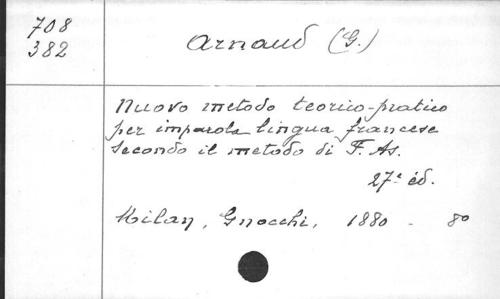 708
382
Arnaud (G.)
Nuovo metodo teorico-pratico
per imparola lingua francese
secondo il metodo di F. As.
27e éd.
Milan, Gnocchi, 1880 - 8o